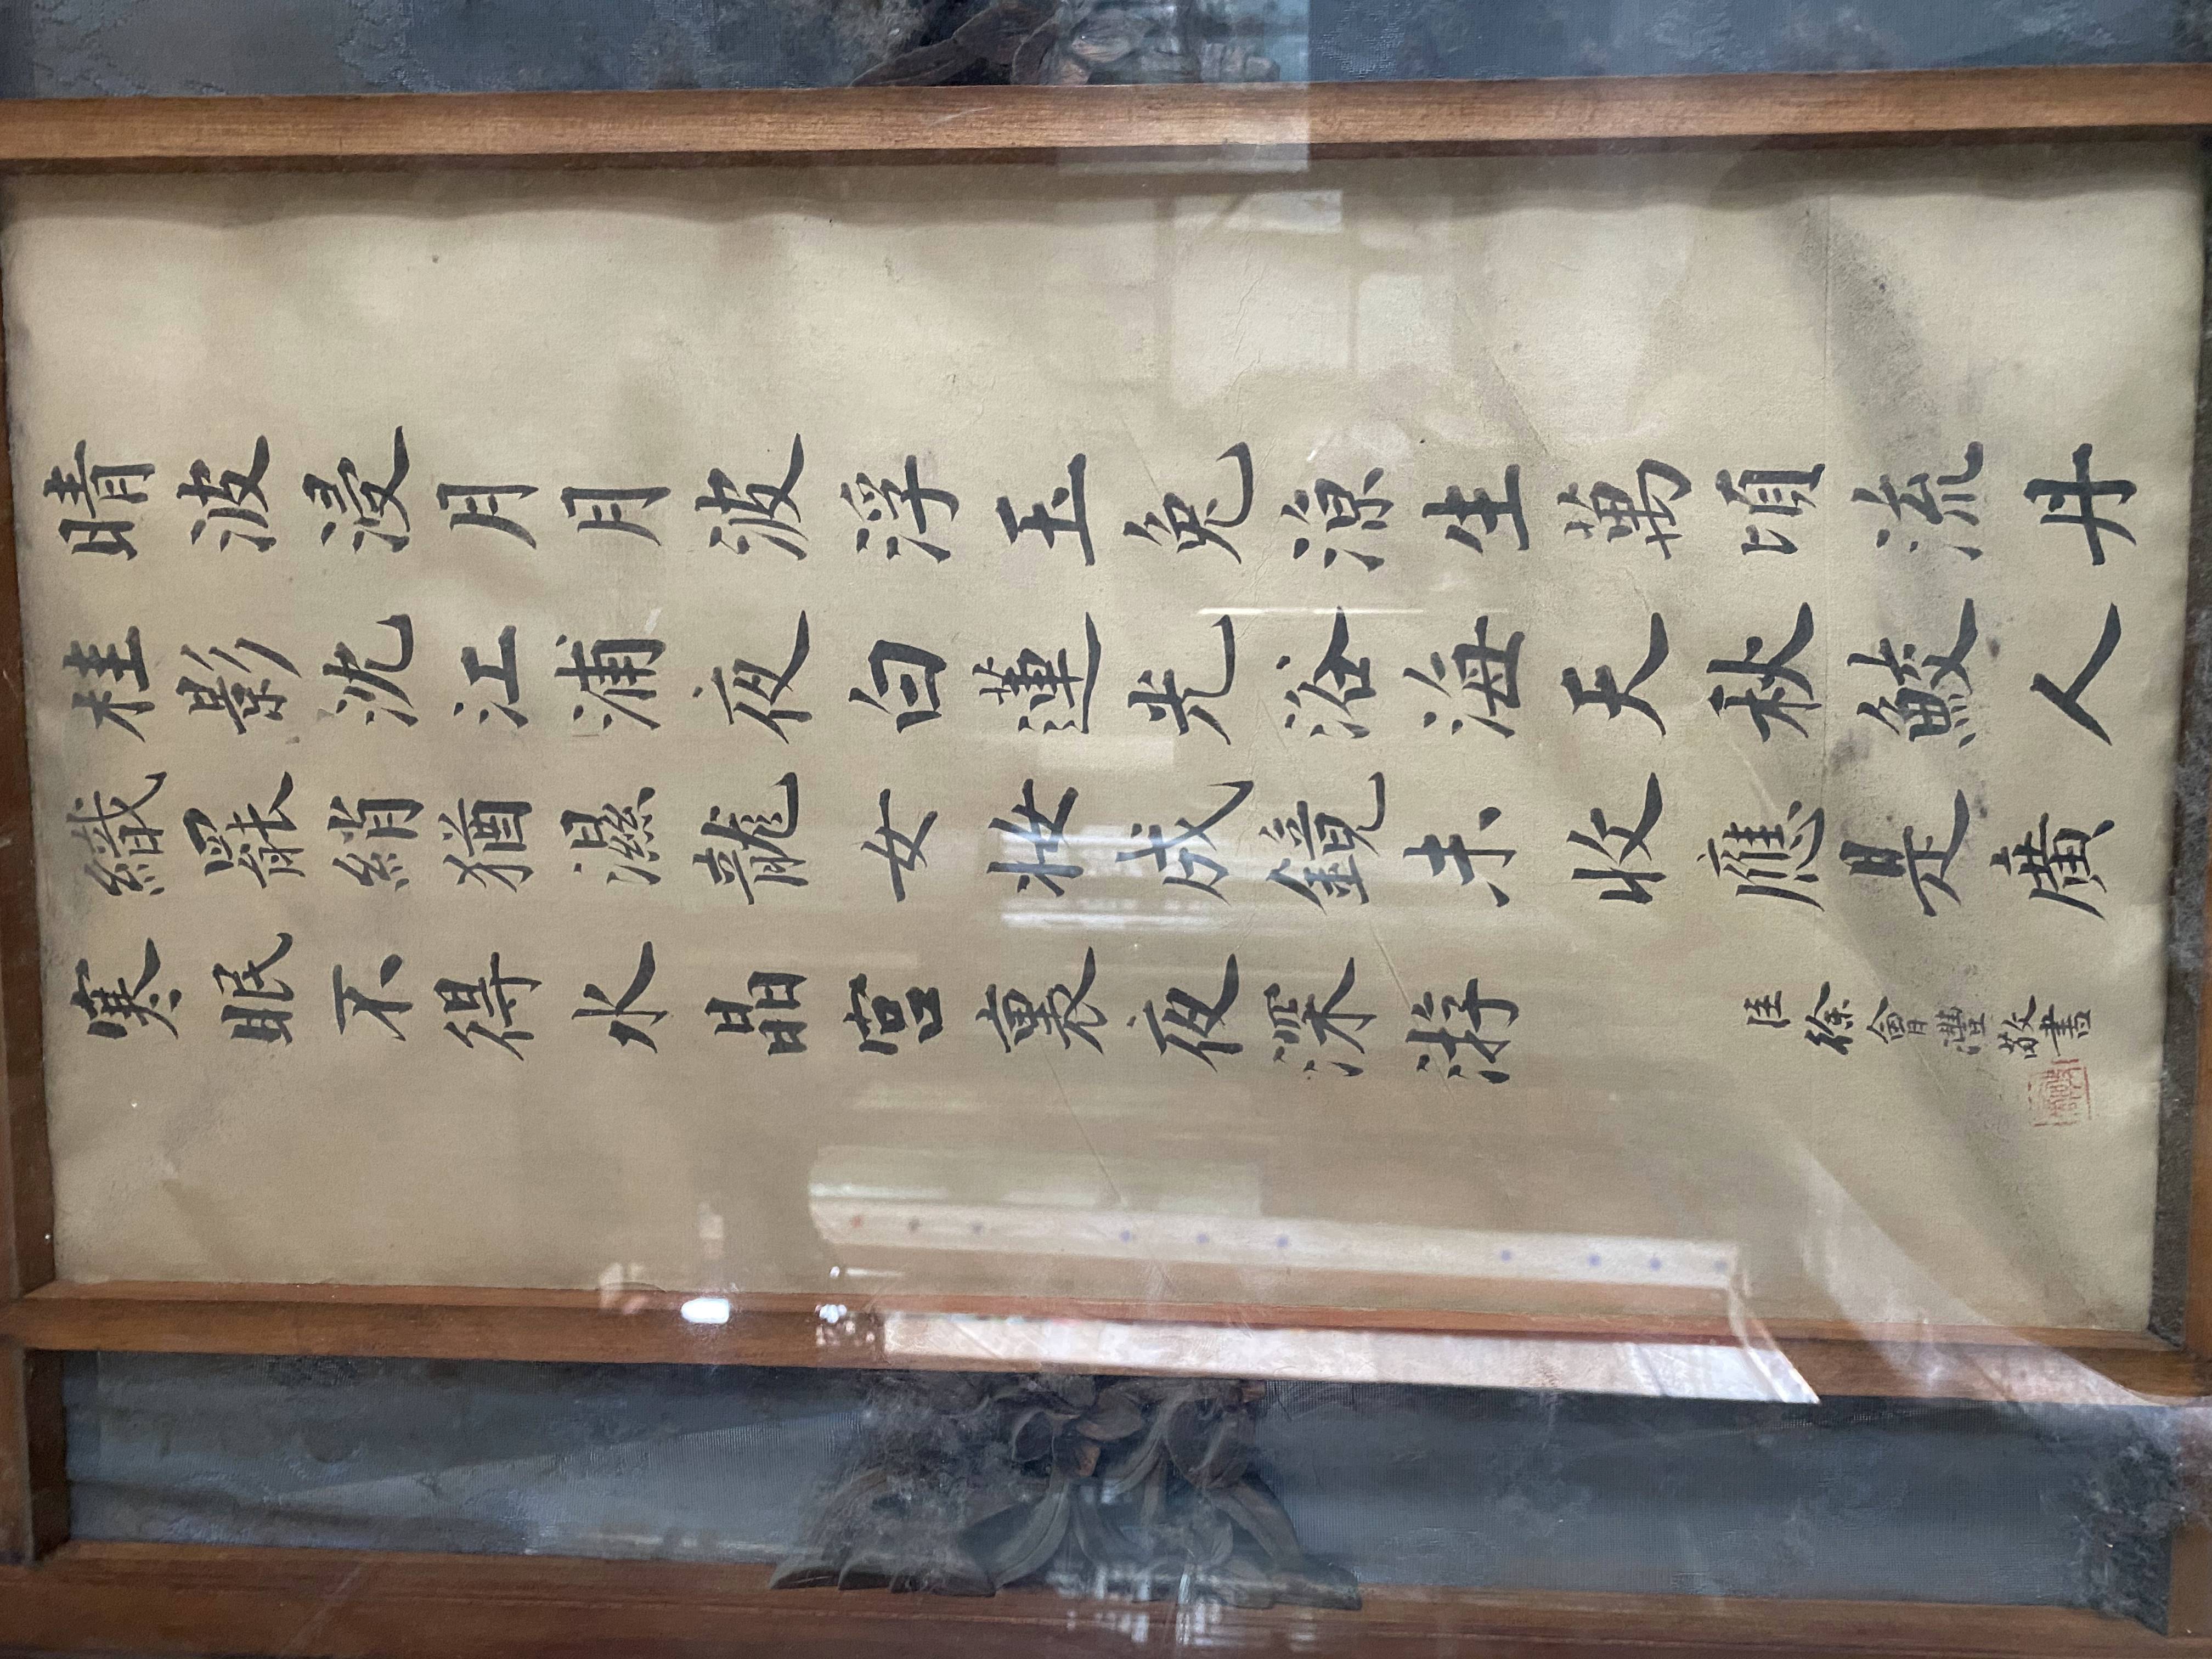 晴波浸月月波浮玉兔涼生萬頃流丹
桂影沈江浦夜白蓮光浴海天秋鮫人
織罷綃猶濕龍女妝成鏡未收應是廣
寒眠不得水晶宮裏夜深游
臣徐會灃敬書